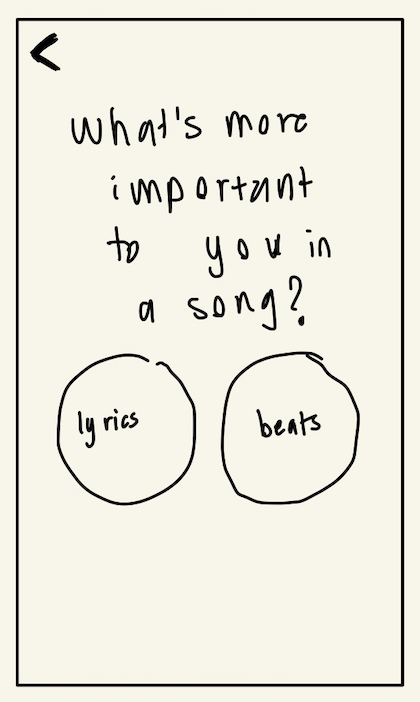 what's more
important
to you in
a song?
lyrics
beats